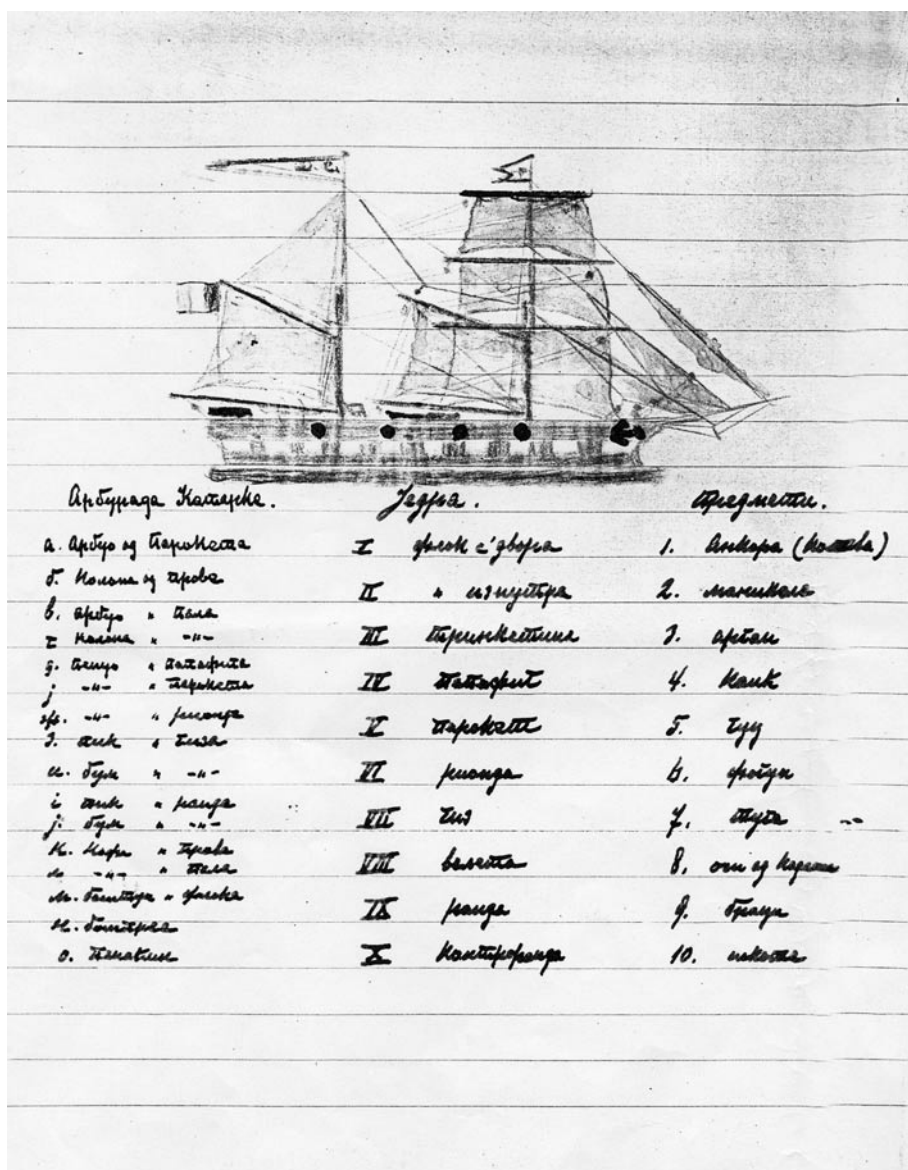 Арбурада Катарке.
а. Арбуо од Парокета
б. Колона од прова
в. арбуо „ пала
г колона „ -„-
д. „ папафига
ј -„- „ парокета
ж. -„- „ рионда
з. пик „ гиза
и. бум „ -„-
і пик „ ранда
ј. бум „ -„-
к. Кофа „ прова
л -„- „ пала
м. баштун „ флока
н.
о.
Једра.
I флок с'двора
II „ изнутра
III тринкетина
IV папафиг
V парокет
VI рионда
VII гиз
VIII
IX ранда
X контроранда
Предмети.
1. Анкора (котва)
2. маникола
3.
4. каик
5.
6. фогун
7. туга
8. очи од
9.
10. шкота